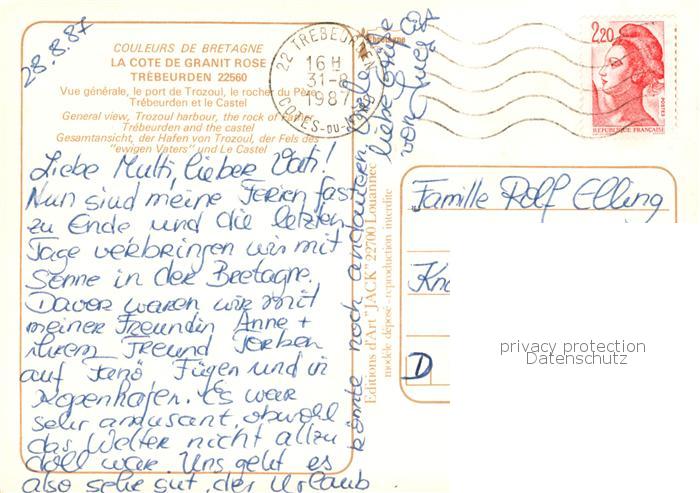 28.8.87
COULEURS DE BRETAGNE
LA COTE DE GRANIT ROSE
TRÉBEURDEN 22560
Vue générale, le port de Trozoul, le rocher du Père
Trébeurden et le Castel
General view, Trozoul harbour, the rock of Father
Trébeurden and the castel
Gesamtansicht, der Hafen von Trozoul, der Fels des
"ewigen Vaters" und Le Castel
22 TREBEURDEN
16 H
31-8
1987
COTES-DU-NORD
2,20
POSTES
REPUBLIQUE FRANÇAISE
Liebe Mutti, lieber Vati!
Nun sind meine Ferien fast
zu Ende und die letzten
Tage verbringen wir mit
Sonne in der Bretagne.
Davor waren wir mit
meiner Freundin Anne +
ihrem Freund Torben
auf Fanö, Fügen und in
Kopenhagen. Es war
sehr amüsant, obwohl
das Wetter nicht allzu
doll war. Uns geht es
also sehr gut, der Urlaub
könnte noch andauern
liebe Grüße
von
Editions d'Art "JACK" 22700 Louannec
modèle déposé - reproduction interdite
Famille Rolf Elling
D
privacy protection
Datenschutz